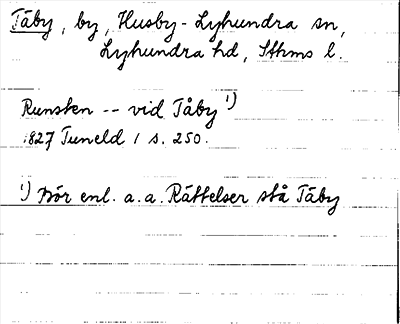 Täby, by, Husby-Lyhundra sn,
Lyhundra hd, Sthms l.
Runsten -- vid Tåby 1)
1827 Tuneld 1 s. 250.
1) Bör enl. a.a. Rättelser stå Täby